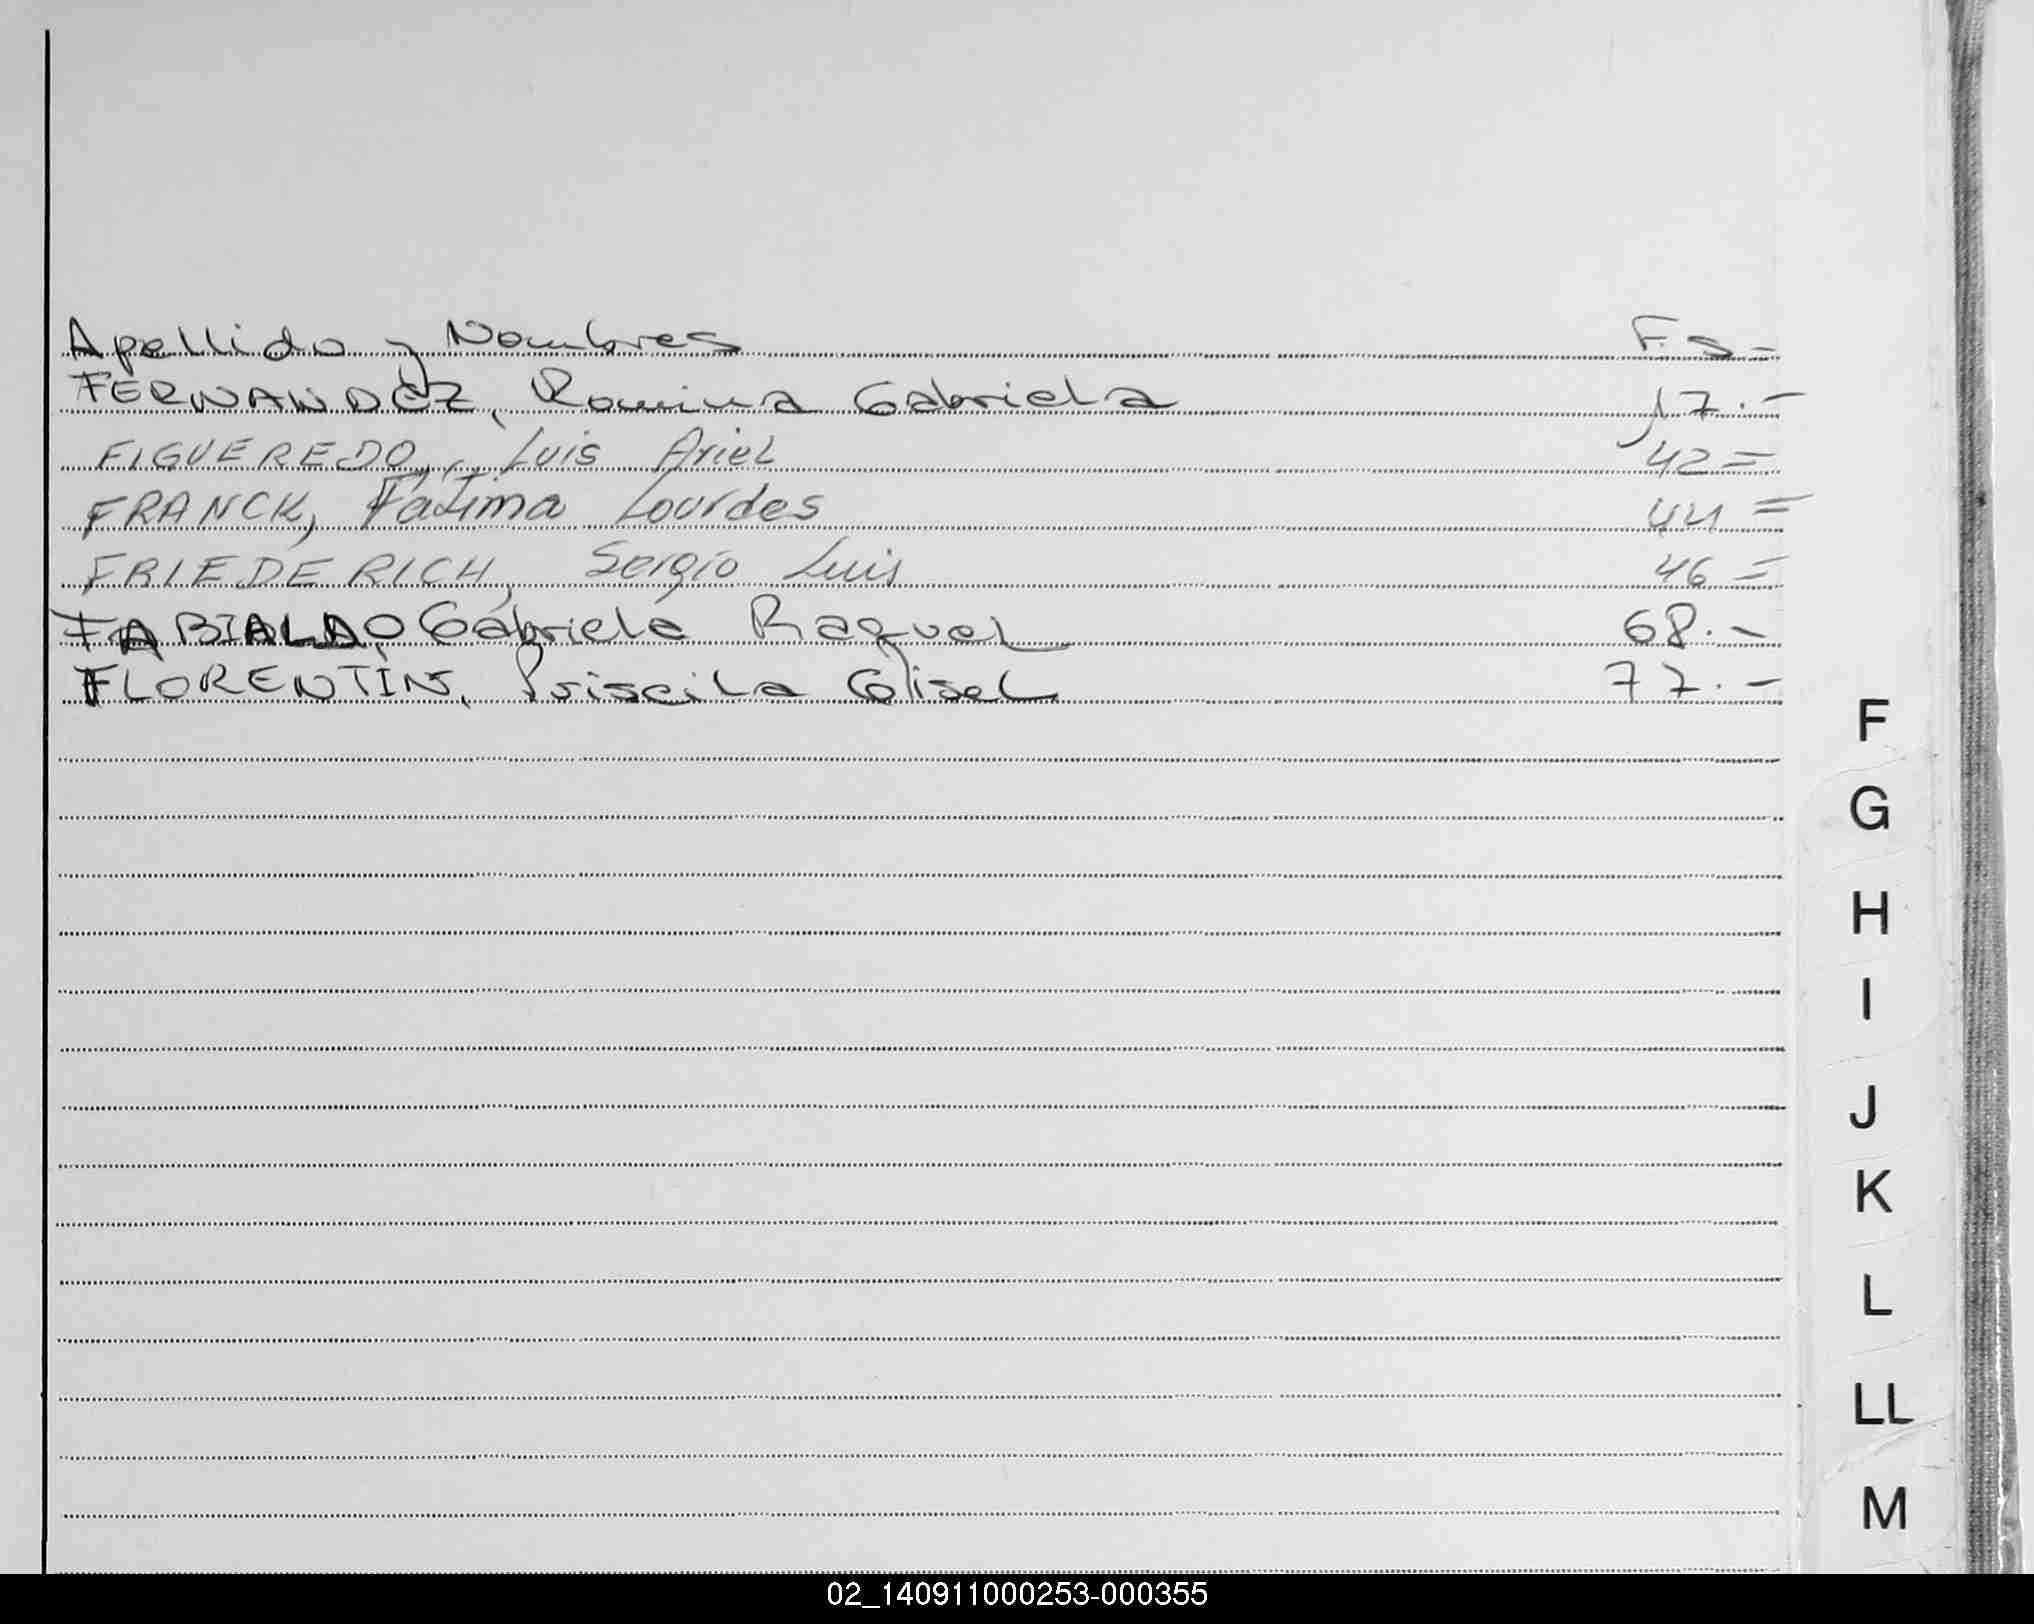 Apellido y Nombres F.s-
FERNANDEZ, Romina Gabriela 17.-
FIGUEREDO, Luis Ariel 42=
FRANCK, Fatima Lourdes 44=
FRIEDERICH, Sergio Luis 46=
FABIALDO, Gabriela Raquel 68.-
FLORENTIN, Priscila Glisel 77.-
F
G
H
I
J
K
L
LL
M
02_140911000253-000355